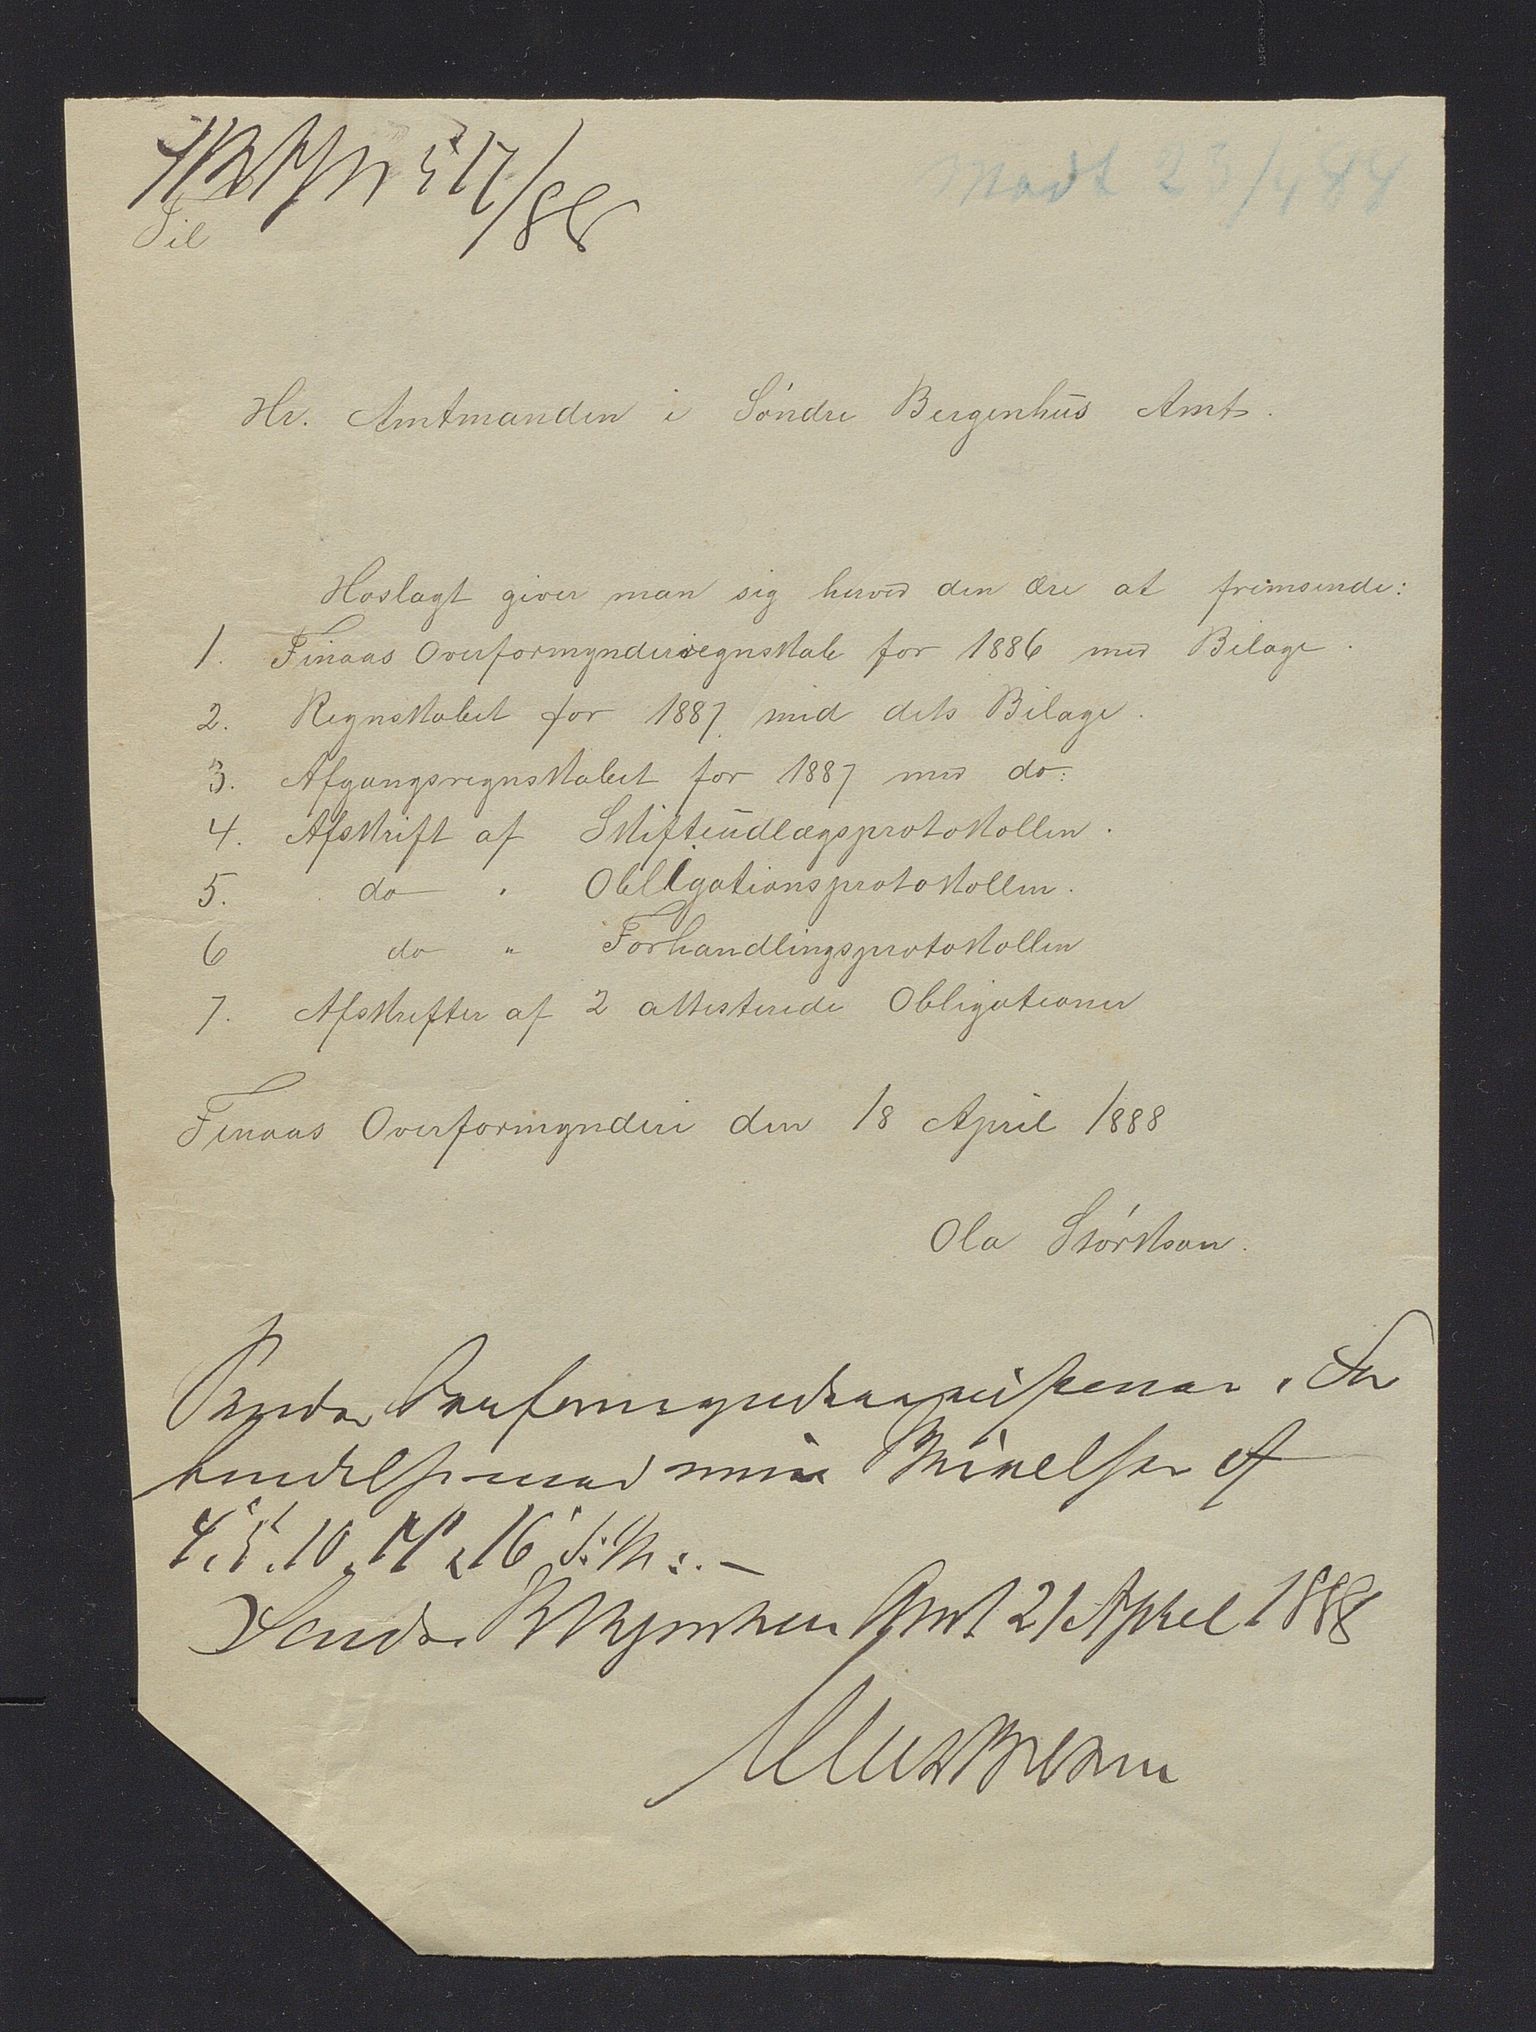 517/88
Modt 23/4 88
Til
Hr. Amtmanden i Søndre Bergenhūs Amt.
Hoslagt giver man sig herved den Ære at fremsende:
1. Finaas Overformynderiregnskab for 1886 med Bilage.
2. Regnskabet for 1887 med dets Bilage.
3. Afgangsregnskabet for 1887 med do:
4. Afskrift af Skifteūdlægsprotokollen.
5. do " Obligationsprotokollen.
6 do " Forhandlingsprotokollen
7. Afskrifter af 2 attesterede Obligationer
Finaas Overformynderi den 18 April 1888
Ola Størkson.
Sendes Overformynderi
min Skrivelser af
4, 5, 10, 14 & 16 d: M:. —
Søndre Bergenhus Amt 21 April 1888